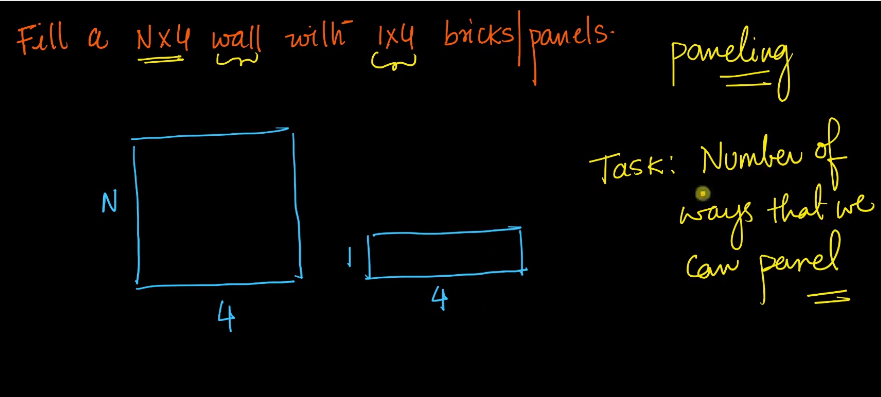 Fill a N×4 wall with 1×4 bricks/panels.
paneling
Task: Number of
ways that we
can panel
N
4
1
4